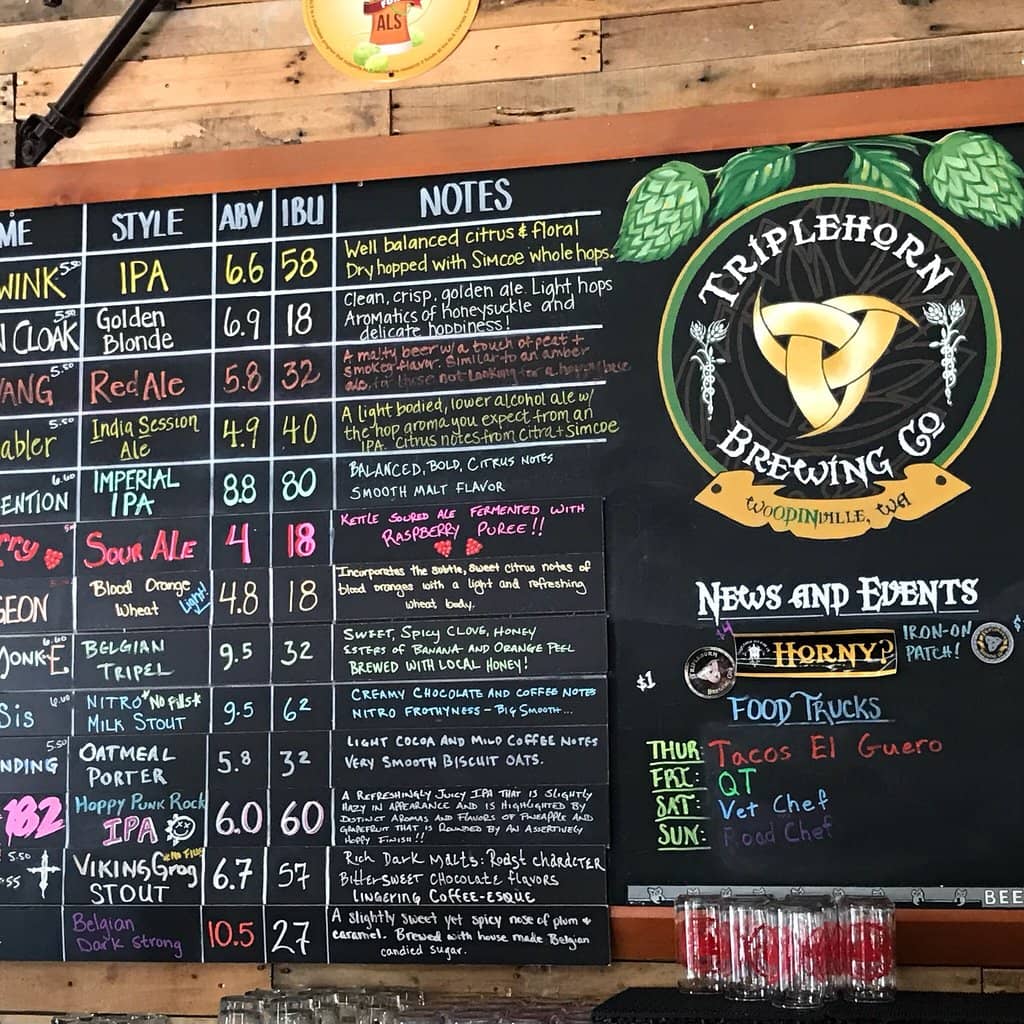 FOR
ALS
ME STYLE ABV IBU NOTES
WINK 5.50 IPA 6.6 58 Well balanced citrus & floral
Dry hopped with Simcoe whole hops.
N CLOAK 5.50 Golden Blonde 6.9 18 Clean, crisp, golden ale. Light hops
Aromatics of honeysuckle and
delicate hoppiness!
VANG 5.50 Red Ale 5.8 32 A malty beer w/ a touch of peat +
smokey flavor. Similar to an amber
ale, for those not looking for a hoppy
abler 5.50 India Session Ale 4.9 40 A light bodied, lower alcohol ale w/
the hop aroma you expect from an
IPA. Citrus notes from citra + Simcoe
ENTION 6.60 IMPERIAL IPA 8.8 80 BALANCED, BOLD, CITRUS NOTES
SMOOTH MALT FLAVOR
rry SOUR ALE 4 18 KETTLE SOURED ALE FERMENTED WITH
RASPBERRY PUREE!!
GEON Blood Orange Wheat Light! 4.8 18 Incorporates the subtle, sweet citrus notes of
blood oranges with a light and refreshing
wheat body.
MONK-E 6.60 BELGIAN TRIPEL 9.5 32 SWEET, SPICY CLOVE, HONEY
ESTERS OF BANANA AND ORANGE PEEL
BREWED WITH LOCAL HONEY!
SIS 6.60 NITRO *NO FILLS* MILK STOUT 9.5 62 CREAMY CHOCOLATE AND COFFEE NOTES
NITRO FROTHYNESS - BIG SMOOTH...
NDING 5.50 OATMEAL PORTER 5.8 32 LIGHT COCOA AND MILD COFFEE NOTES
VERY SMOOTH BISCUIT OATS.
182 Hoppy Punk Rock IPA 6.0 60 A REFRESHINGLY JUICY IPA THAT IS SLIGHTLY
HAZY IN APPEARANCE AND IS HIGHLIGHTED BY
DISTINCT AROMAS AND FLAVORS OF PINEAPPLE AND
GRAPEFRUIT THAT IS ROUNDED BY AN ASSERTIVELY
HOPPY FINISH!!
SS 5.50 VIKING Grog STOUT 6.7 57 Rich Dark Malts: Roast character
Bittersweet Chocolate flavors
LINGERING COFFEE-ESQUE
Belgian Dark Strong 10.5 27 A slightly sweet yet spicy nose of plum &
caramel. Brewed with house made Belgian
candied sugar.
TRIPLEHORN
BREWING CO
WOODINVILLE, WA
NEWS AND EVENTS
$1 HORNY? $4 IRON-ON
PATCH! $
FOOD TRUCKS
THUR: Tacos El Guero
FRI: QT
SAT: Vet Chef
SUN: Road Chef
BEE